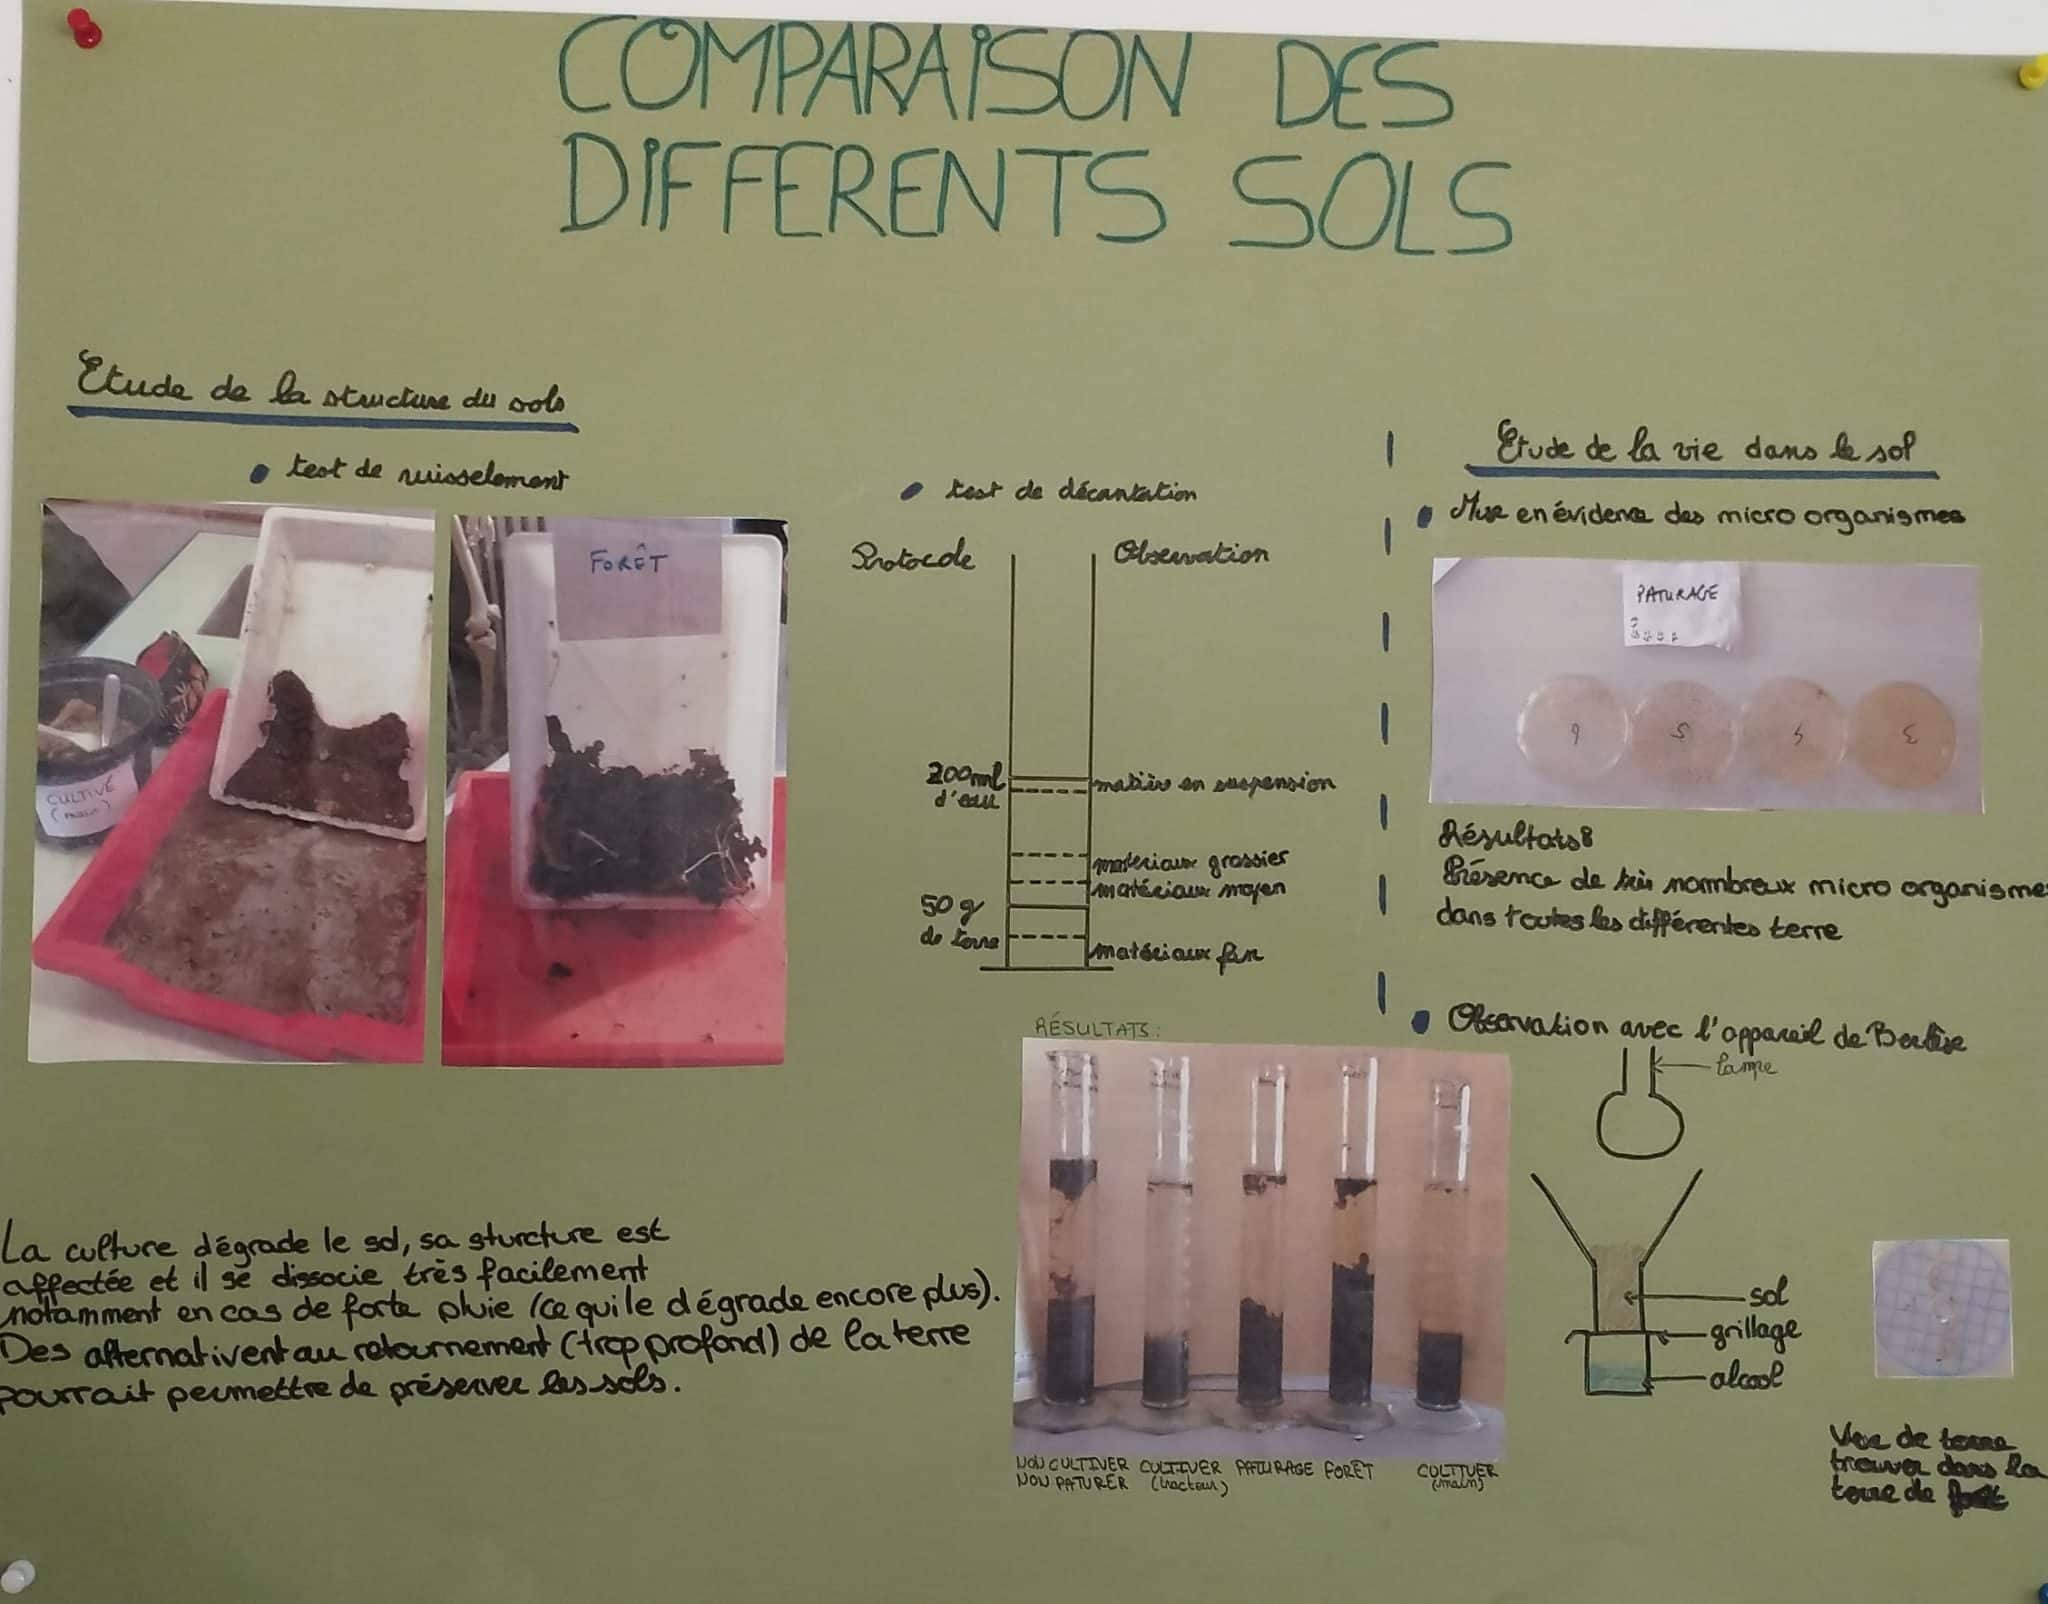 COMPARAISON DES
DIFFERENTS SOLS
Etude de la structure du sols
• test de ruisselement
CULTIVÉ
(main)
FORÊT
La culture dégrade le sol, sa sturcture est
affectée et il se dissocie très facilement
notamment en cas de forte pluie (ce qui le dégrade encore plus).
Des afternativent au retournement (trop profond) de la terre
pourrait permettre de préserver les sols.
• test de décantation
Protocole
Observation
200ml
d'eau
50 g
de terre
matière en suspension
materiaux grossier
matériaux moyen
matériaux fin
RÉSULTATS:
NON CULTIVER
NON PATURER
CULTIVER
(tracteur)
PATURAGE
FORÊT
CULTIVER
(main)
Etude de la vie dans le sol
• Mise en évidence des micro organismes
PATURAGE
6
5
4
3
Résultats:
Présence de très nombreux micro organisme
dans toutes les différentes terre
• Observation avec l'appareil de Berlèse
lampe
sol
grillage
alcool
Ver de terre
trouver dans la
terre de forêt